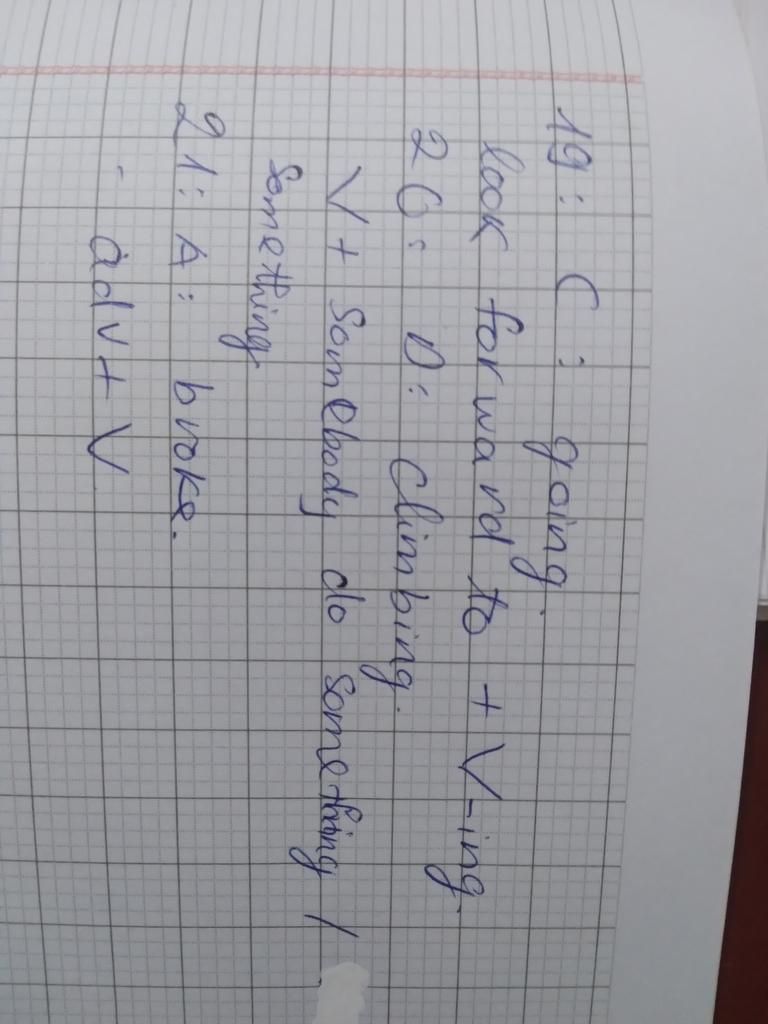 19: C: going.
look forward to + V-ing.
20: D: Climbing.
V + Somebody do something /
something
21: A: broke.
- adv + V